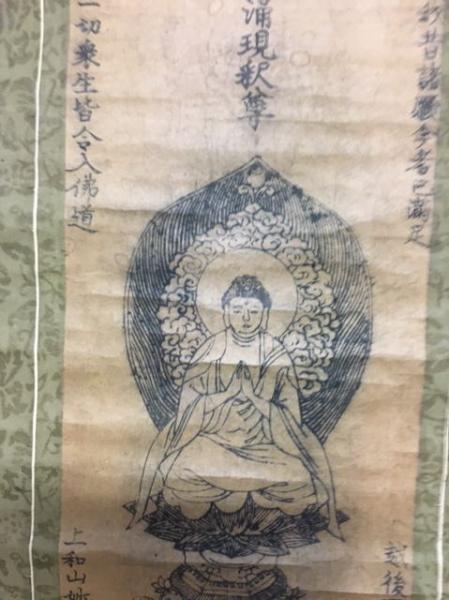 我昔諸願今者已満足
越後
涌現釈尊
一切衆生皆令入佛道
上和山妙